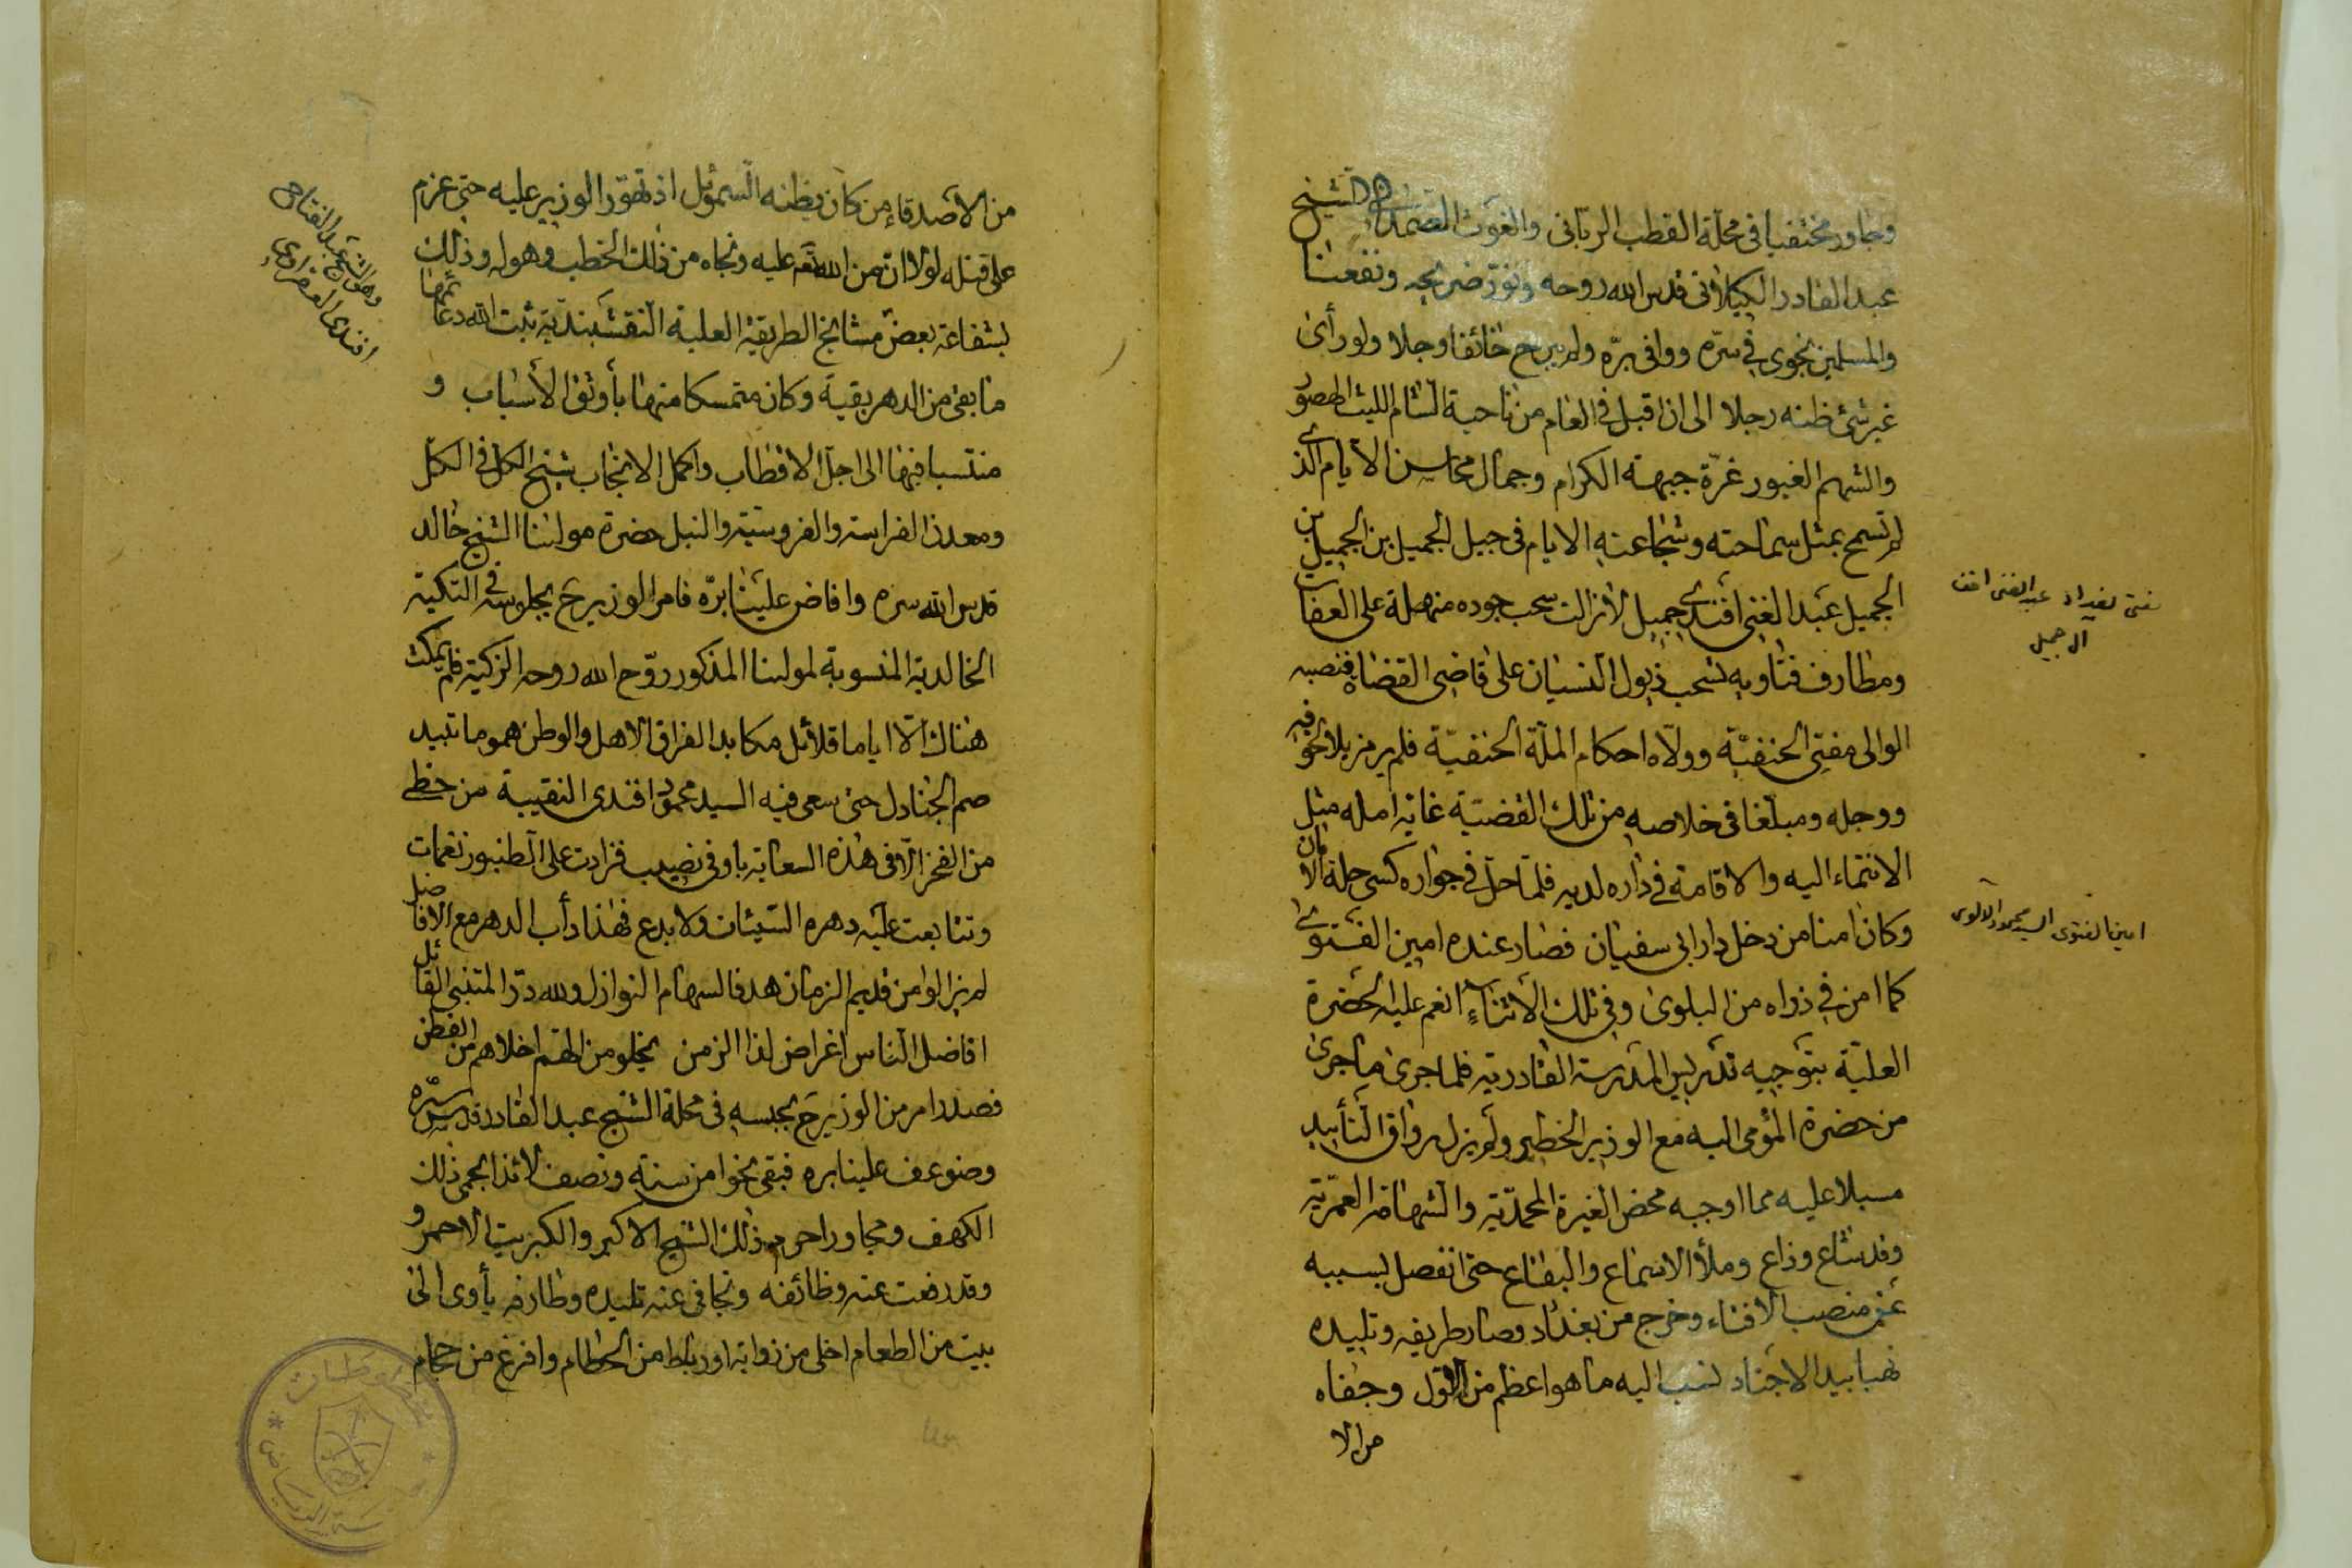 وجاور مختفيا في محلة القطب الرباني والغوث الصمداني الشيخ
عبد القادر الكيلاني قدس الله روحه ونور ضريحه ونفعنا
والمسلمين بجوى في سره ووافى بره ولم يبرح خائفا وجلا ولو رأى
غير شئ ظنه رجلا الى ان اقبل في العام من ناحية الشام الليث الهصور
والشهم الغيور غرة جبهة الكرام وجمال محاسن الايام الذي
لم تسمح بمثل سماحته وشجاعته الايام في جيل الجميل بن الجميل بن
الجميل عبد الغني افندي جميل لا زالت سحب جوده منهلة على العفاة
ومطارف فتاويه تسحب ذيول النسيان على قاضي القضاة فنصبه
الوالي مفتي الحنفية وولاه احكام الملة الحنفية فلم ير مزيلا لخوفه
ووجله ومبلغا في خلاصه من تلك القضية غاية امله مثل
الانتماء اليه والاقامة في داره لديه فلما حل في جواره كسى حلة الامان
وكان امنا من دخل دار ابي سفيان فصار عنده امين الفتوى
كما امن في ذراه من البلوى وفي تلك الاثناء انعم عليه الحضرة
العلية بتوجيه تدريس المدرسة القادرية فلما جرى ما جرى
من حضرة المؤمى اليه مع الوزير الخطير ولم يزل رواق التأييد
مسبلا عليه مما اوجبه محض الغيرة المحمدية والشهامة العمرية
وقد شاع وذاع وملأ الاسماع والبقاع حتى انفصل بسببه
عن منصب الافتاء وخرج من بغداد وصار طريفه وتليده
نهبا بيد الاجناد نسب اليه ما هو اعظم من الاول وجفاه
من الا
مفتي بغداد عبد الغني افندي
ال جميل
امين الفتوى السيد محمود الالوسي
من الاصدقاء من كان يظنه السموئل اذ تهور الوزير عليه حتى عزم
على قتله لولا ان من الله تعـ عليه ونجاه من ذلك الخطب وهوله وذلك
بشفاعة بعض مشايخ الطريقة العلية النقشبندية ثبت الله دعائمها
ما بقى من الدهر بقية وكان متمسكا منها بأوثق الأسباب و
منتسبا فيها الى اجل الاقطاب واكمل الانجاب شيخ الكل في الكل
ومعدن الفراسة والفروسية والنبل حضرة مولٰنا الشيخ خالد
قدس الله سره وافاض علينا بره فامر الوزير ح بجلوسه في التكية
الخالدية المنسوبة لمولٰنا المذكور روح الله روحه الزكية فلم يمكث
هناك الا اياما قلائل مكابدا لفراق الاهل والوطن هموما تبيد
صم الجنادل حتى سعى فيه السيد محمود افندي النقيب من خطى
من الفخر الا في هذه السعاية باوفى نصيب فزادت على الطنبور نغمات
وتتابعت عليه دهره السيئات ولا بدع فهذا دأب الدهر مع الافاضل
لم يزالوا من قديم الزمان هدفا لسهام النوازل ولله در المتنبي القائل
افاضل الناس اغراض لذا الزمن يخلو من الهم اخلاهم من الفطن
فصدر امر من الوزير ح بحبسه في محلة الشيخ عبد القادر قدس سره
وضوعف علينا بره فبقى نحوا من سنة ونصف لائذا بحمى ذلك
الكهف ومجاورا حرم ذلك الشيخ الاكبر والكبريت الاحمر و
وقد رفعت عنه وظائفه وتجافى عنه تليده وطارفه يأوى الى
بيت من الطعام اخلى من زواية او رباط من الحطام وافرغ من حجام
وهو الشيخ عبد الفتاح
افندي